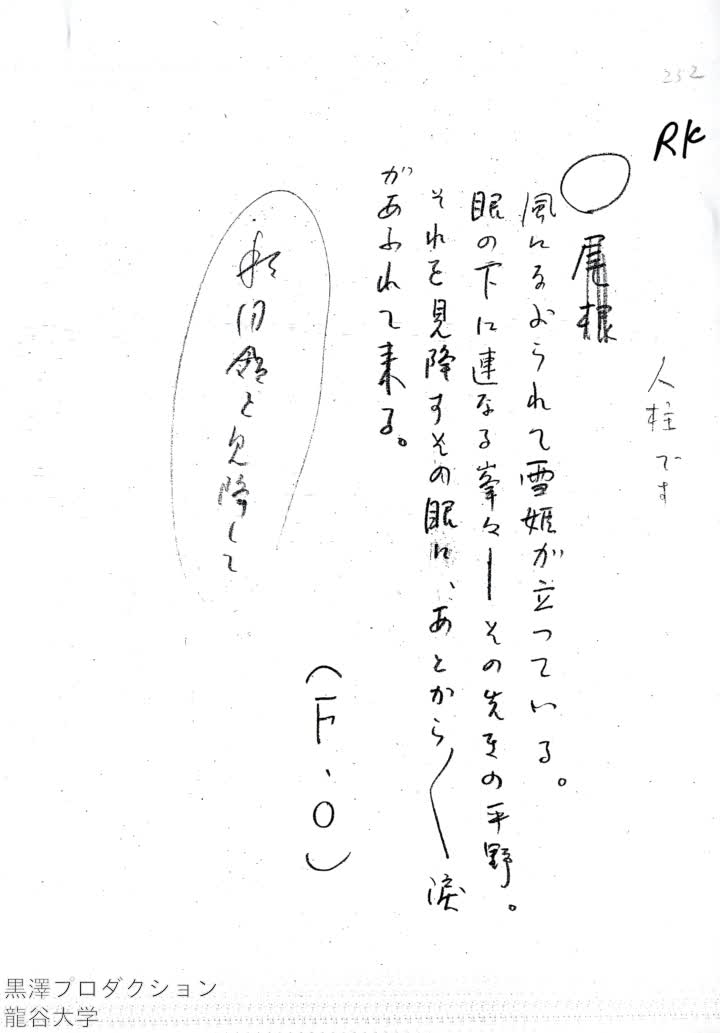 252
RK
人柱です
○尾根
風にあおられて雪姫が立つている。
眼の下に連なる峯々―その先きの平野。
それを見降すその眼に、あとから〳〵涙
があふれて来る。
を見降して
(F、O)
黒澤プロダクション
龍谷大学